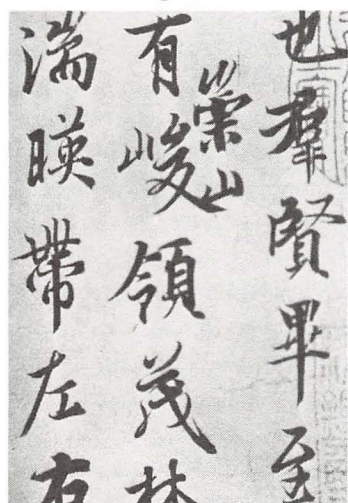 也羣賢畢至
有崇山峻領茂林
湍暎帶左右